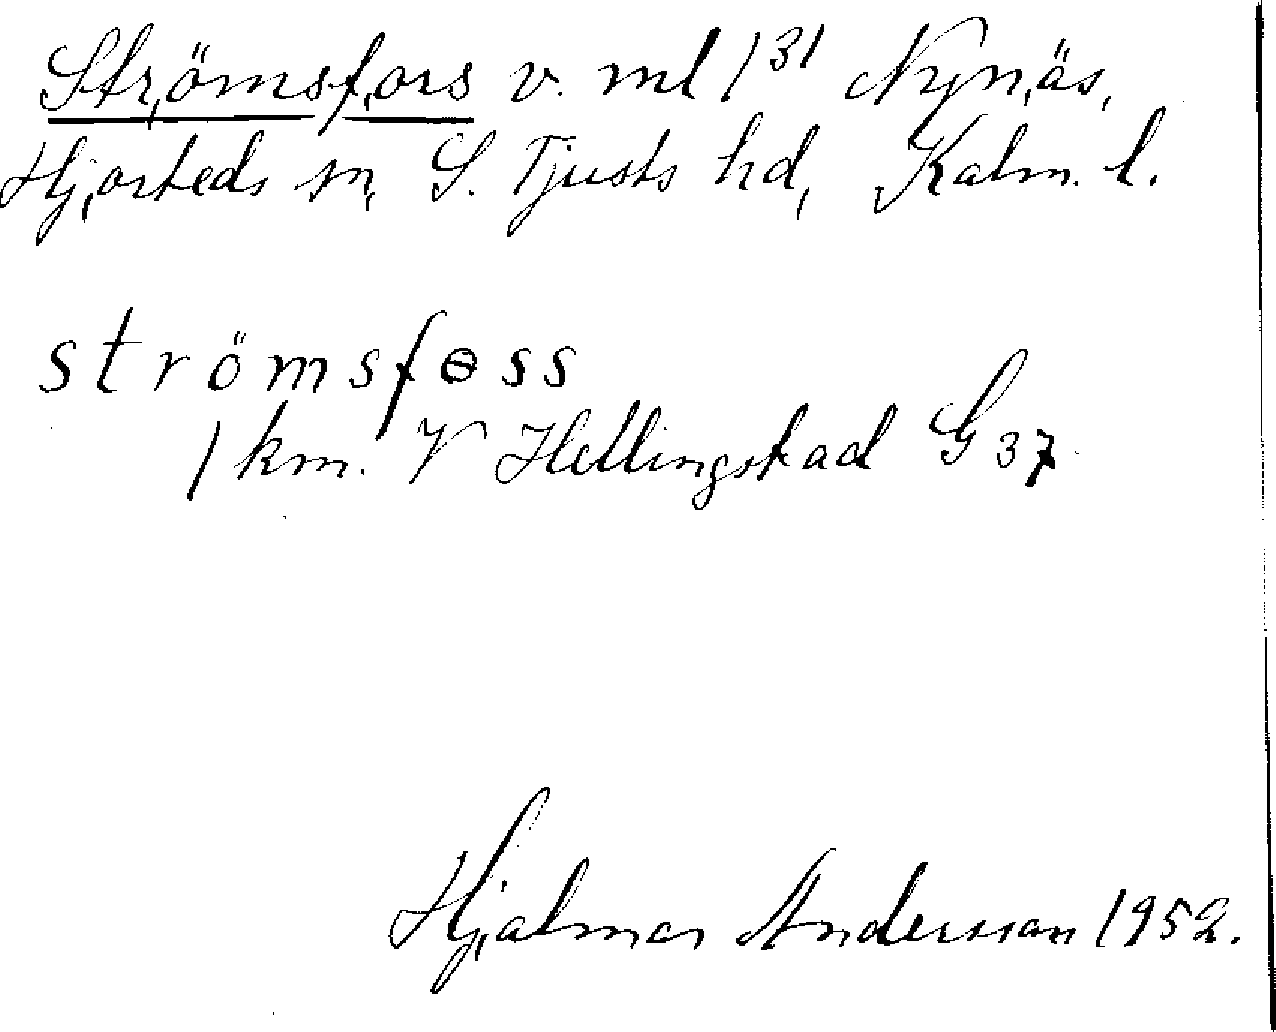 Strömsfors v. ml 1³¹ Nynäs,
Hjorteds sn, S. Tjusts hd, Kalm. l.
strömsfɵss
1 km. V Hellingstad G 37.
Hjalmar Andersson 1952.